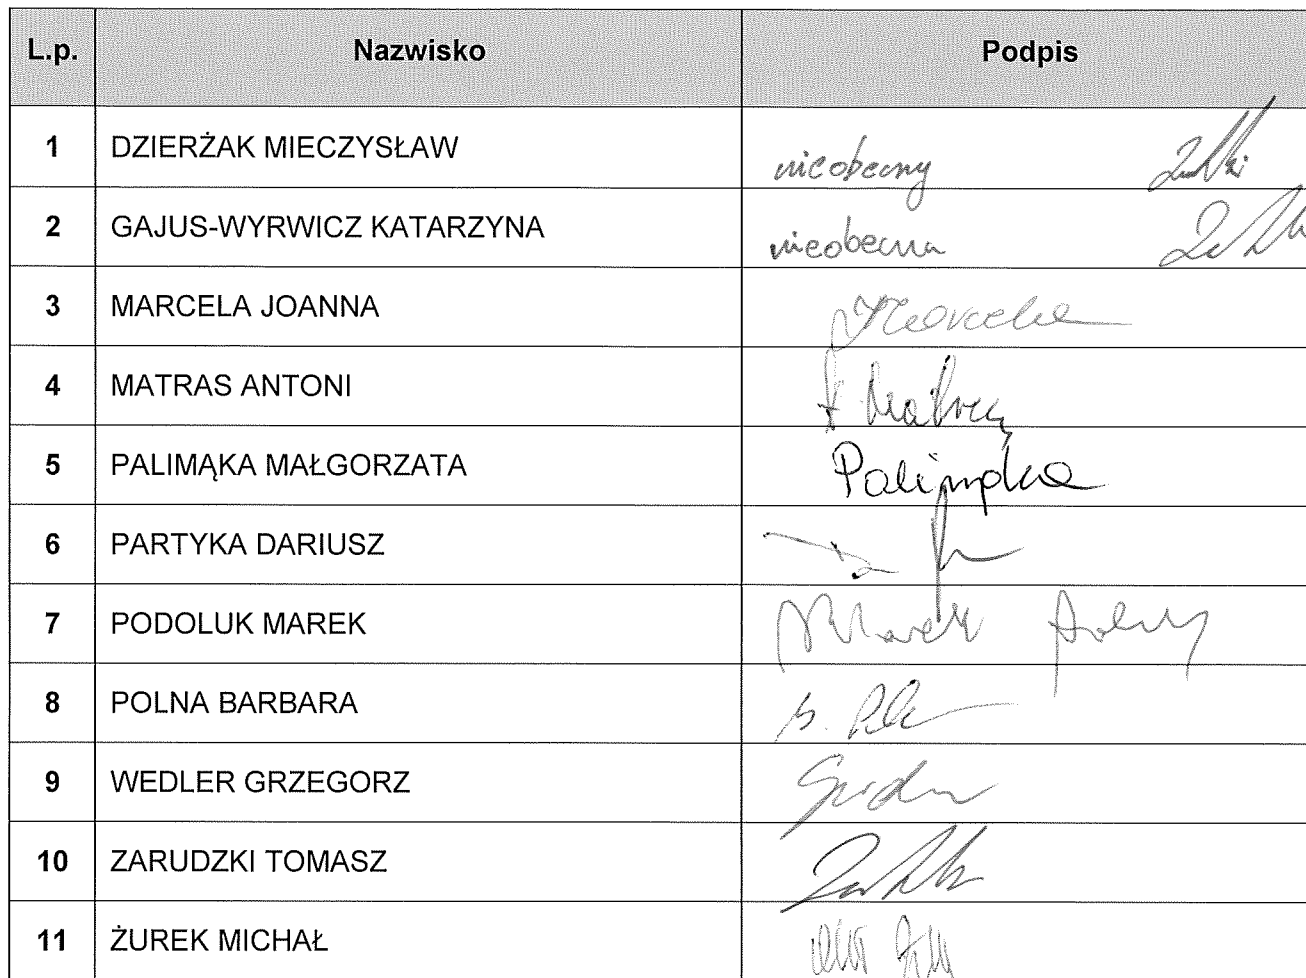 L.p. Nazwisko Podpis
1 DZIERŻAK MIECZYSŁAW nieobecny
2 GAJUS-WYRWICZ KATARZYNA nieobecna
3 MARCELA JOANNA Marcela
4 MATRAS ANTONI
5 PALIMĄKA MAŁGORZATA Palimąka
6 PARTYKA DARIUSZ
7 PODOLUK MAREK Marek
8 POLNA BARBARA
9 WEDLER GRZEGORZ
10 ZARUDZKI TOMASZ
11 ŻUREK MICHAŁ